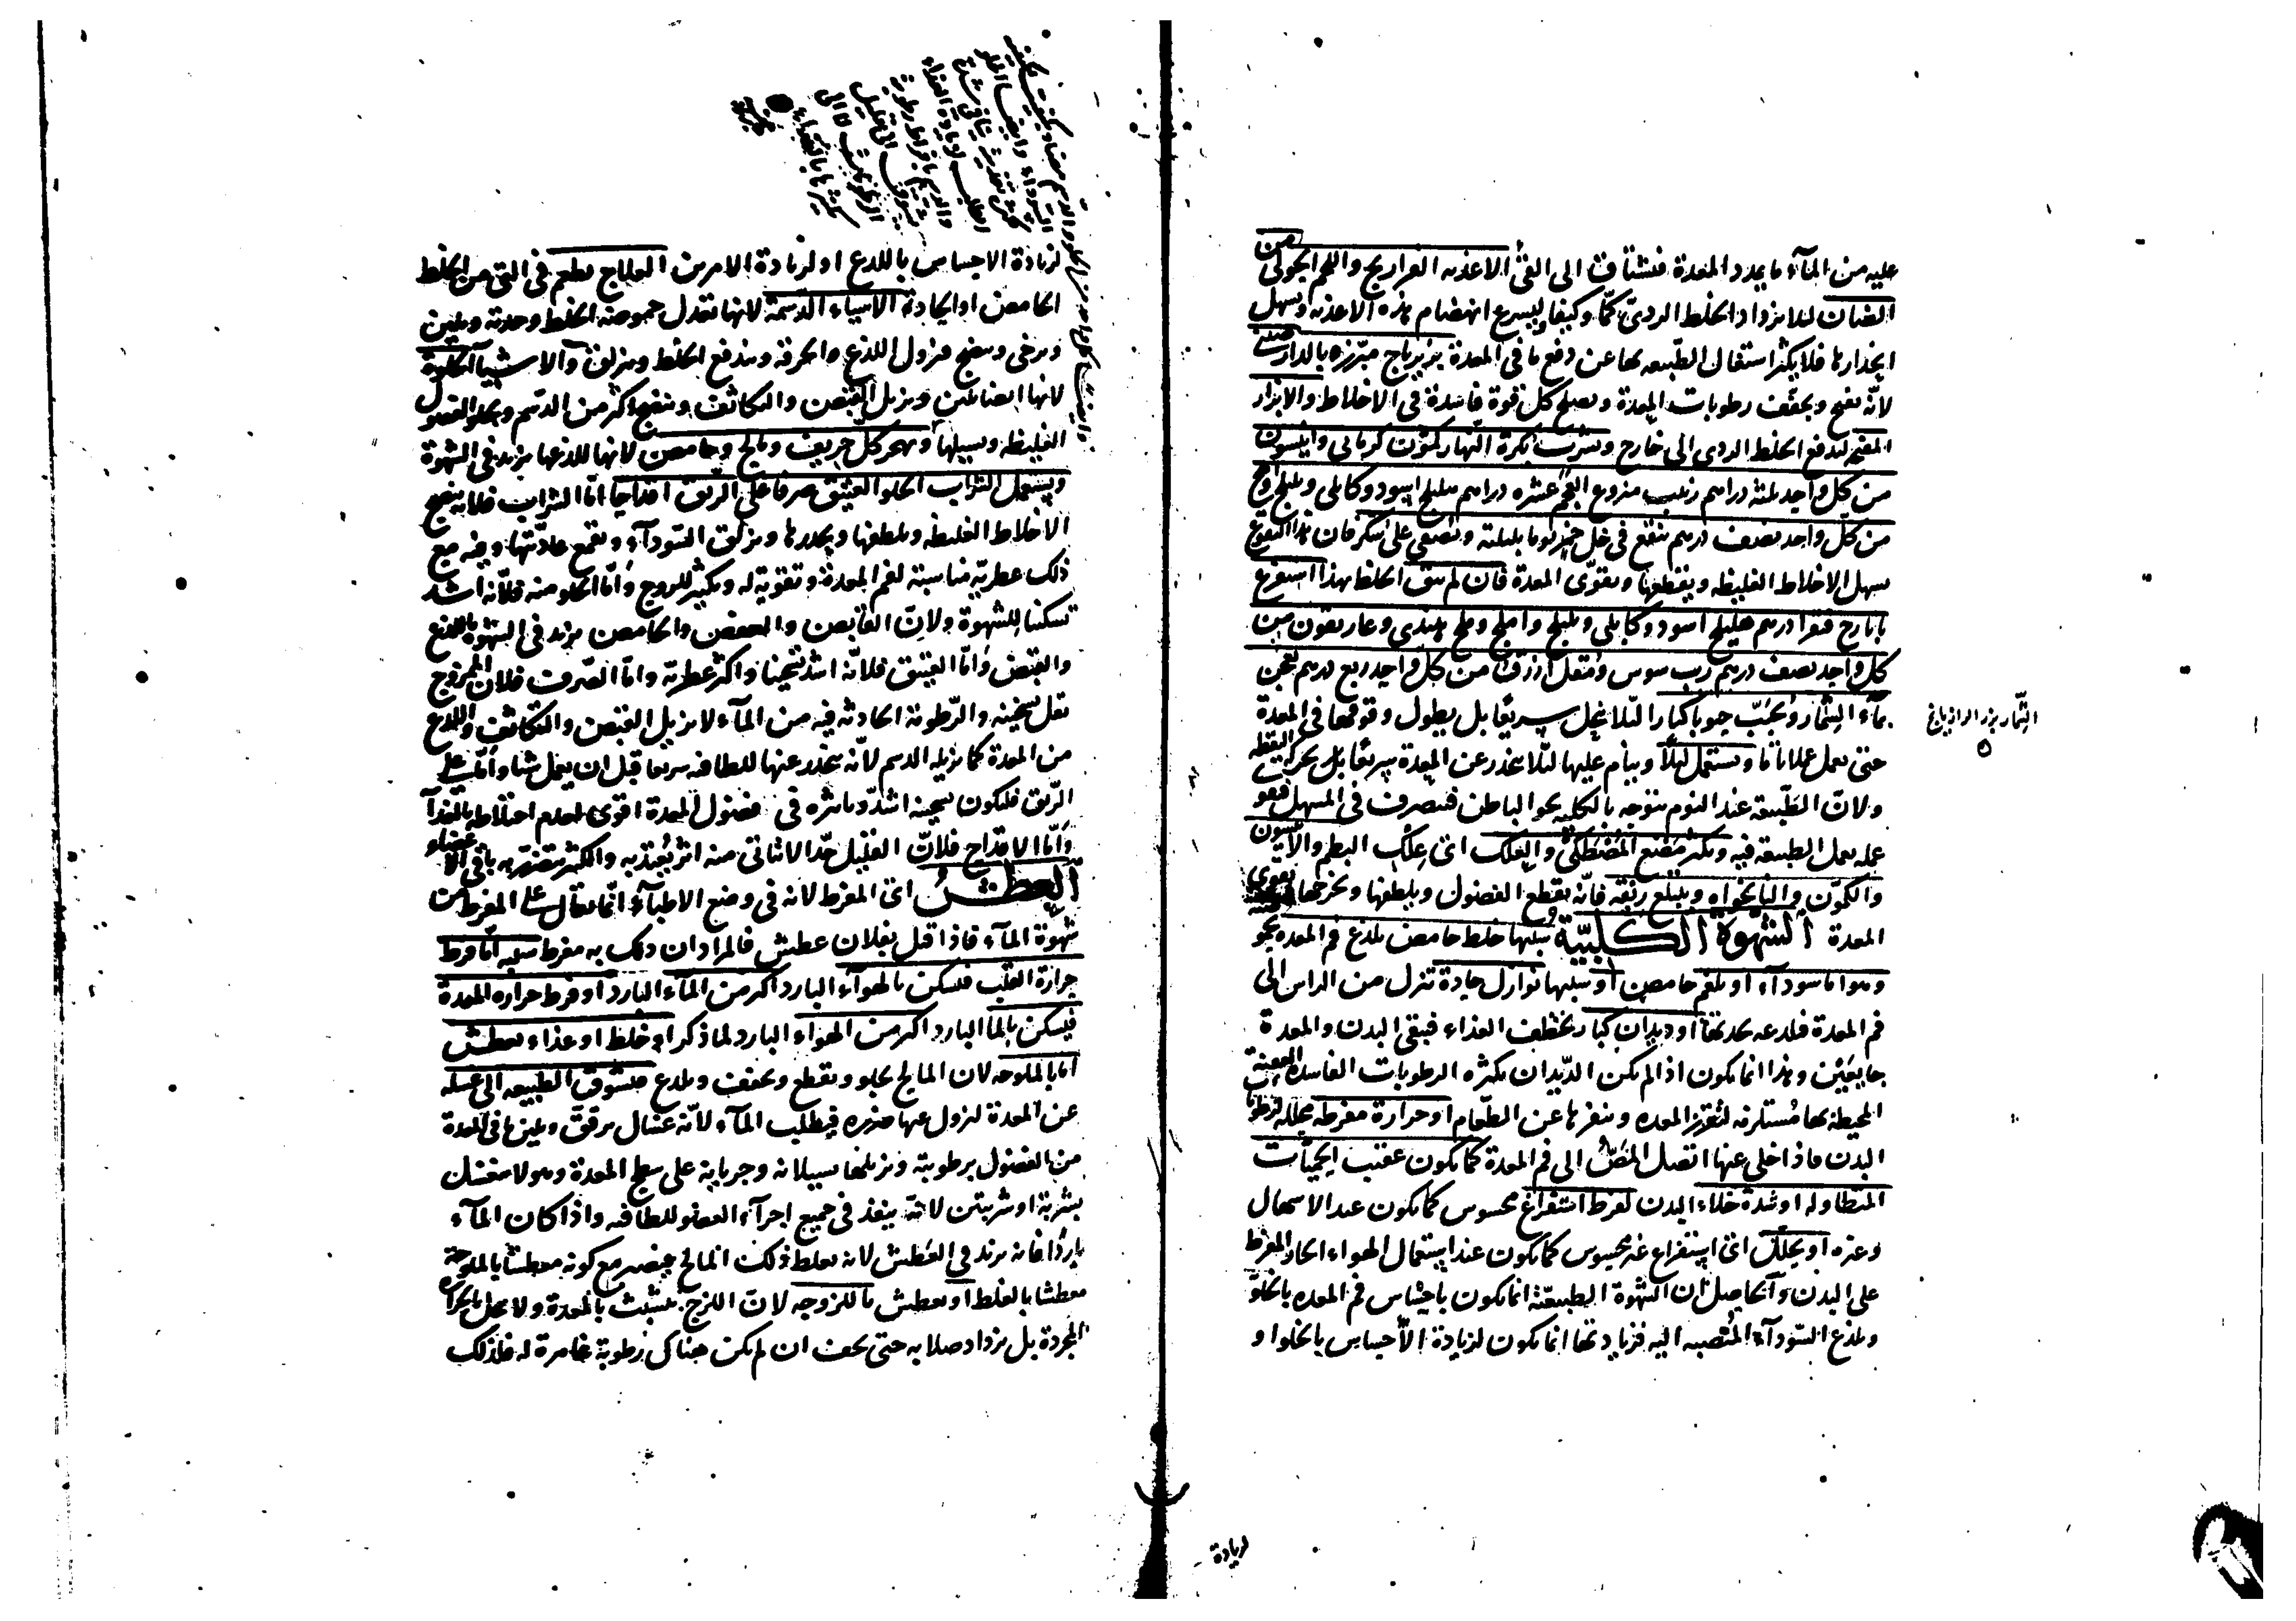 عليه من المآء ما يمدد المعدة فتشتاق الى القئ الاغذيه الفراريج واللحم الحولى من
الضان لئلا يزداد الخلط الردى كمّا وكيفا وليسرع انهضام هذه الاغذيه ويسهل
انحدارها فلا يكثر اشتغال الطّبيعه بها عن دفع ما فى المعدة بزيرباج مبزّره بالدارصينى
لانّه يفتح ويجفّف رطوبات المعدة ويصلح كل قوة فاسدة فى الاخلاط والابزار
المفتحه لتدفع الخلط الردى الى خارج ويشرب بكرة النّهار كمّون كرمانى وانيسون
من كل واحد ثلثة دراهم زبيب منزوع العجم عشره دراهم هليلج اسود وكابلى وبليلج
من كل واحد نصف درهم ينقع فى خل خمر يوما بليلته ويصفى على سكر فان هذا النقوع
يسهل الاخلاط الغليظه ويقطعها ويقوّى المعدة فان لم ينق الخلط بهذا استفرغ
بايارج فيقرا درهم هليلج اسود وكابلى وبليلج واملج وملح هندى وغاريقون من
كل واحد نصف درهم رب سوس ومقل ازرق من كل واحد ربع درهم يعجن
بمآء الشمار ويحبّب حبوبا كبارا لئلا ينحل سريعًا بل يطول وقوفها فى المعدة
حتى يعمل عملا تاما ويستعمل ليلًا وينام عليها لئلا ينحدر عن المعدة سريعًا بل بحركة اليقظه
ولانّ الطّبيعه عند النوم تتوجه بالكليه نحو الباطن فتصرف فى المسهل فهو
عمله بعمل الطبيعه فيه ويكثر مضغ المصطكى والعلك اى علك البطم والانيسون
والكمّون والنانخواه ويبتلع ريقه فانّه يقطع الفضول ويلطفها ويخرجها ويقوى
المعدة الشهوة الكلبيّة سببها خلط حامض يلدغ فم المعده نحو
وهو اما سودآء او بلغم حامض او سببها نوازل حادة تنزل من الراس الى
فم المعدة فلدعه بحدتها او ديدان كبار تخطف الغذاء فيبقى البدن والمعدة
جايعَيْن وهذا انما يكون اذا لم يكن الدّيدان بكثره الرطوبات الفاسده العفنة
المحيطه بها مُستلزمه لتقزز المعده وتنفرها عن الطّعام او حرارة مفرطه محلله لرطوبات
البدن فاذا خلى عنها اتصل المَصّ الى فم المعدة كما يكون عقيب الحمّيات
المتطاوله او شدة خلاء البدن لفرط استفراغ محسوس كما يكون عند الاسهال
وغيره او تحلل اى استفراغ غير محسوس كما يكون عند استعمال الهواء الحار المفرط
على البدن والحاصل ان الشهوة الطبيعيّة انما يكون باحساس فم المعده بالخلوّ
وبلدغ السّودآء المنصبه اليه فزيادتها انما يكون لزيادة الاحساس بالخلو او
الشمار بزر الرازيانج
لزيادة
لزيادة الاحساس باللدغ او لزيادة الامرين العلاج يطعم فى التى من الخلط
الحامض او الحادة الاشياء الدّسمة لانها تعدل حموضه الخلط وحدته ويلين
ويرخى وينضج فيزول اللذع والحرقه ويندفع الخلط ويزلق والاشيآ الحلوة
لانها ايضا تلين ويزيل القبض والتكاثف وينضج اكثر من الدّسم ويجلو الفضول
الغليظه ويسيلها ويهجر كلّ حريف ومالح وحامض لانها للذعها يزيد فى الشهوة
ويستعمل الشراب الحلو العتيق صرفا على الريق اقداحا امّا الشراب فلانه ينضج
الاخلاط الغليظه ويلطفها ويحدرها ويزلق السّودآء ويقمع عاديتها وفيه مع
ذلك عطريّه مناسبة لفم المعدة وتقوية له ويكثر للروح وامّا الحلو منه فلانّه اشد
تسكينا للشهوة ولانّ القابض والعفص والحامض يزيد فى الشهوة باللذع
والقبض وامّا العتيق فلانّه اشد تسخينا واكثر عطريّه وامّا الصّرف فلان الممزوج
يقل تسخينه والرّطوبة الحادثه فيه من المآء لا يزيل القبض والتكاثف واللدغ
من المعدة كما يزيله الدسم لانّه ينحدر عنها للطافته سريعا قبل ان يعمل شيئا وامّا على
الرّيق فليكون تسخينه اشدّ وتاثيره فى فضول المعدة اقوى لعدم اختلاطه بالغذآء
وامّا الاقداح فلانّ القليل جدّا لا يتاتى منه اثر يُعتد به والكثير يتضرر به باقى الاعضاء
العطش اى المفرط لانه فى وضع الاطبآء انّما يقال على المفرط من
شهوة المآء فاذا قيل بفلان عطش فالمراد ان ذلك به مفرط سببه امّا فرط
حرارة القلب فيسكن بالهوآء البارد اكثر من المآء البارد او فرط حراره المعدة
فيسكن بالما البارد اكثر من الهواء البارد لما ذكر او خلط او غذاء معطش
اما بالملوحه لان المالح يجلو ويقطع ويجفف ويلدغ فيتشوق الطبيعه الى غسله
عن المعدة ليزول عنها ضرره فيطلب المآء لانّه غسّال يرقق ويلين ما فى المعدة
من الفضول برطوبته ويزيلها بسيلانه وجريانه على سطح المعدة وهو لا ينغسل
بشربة او شربتين لانّه ينفذ فى جميع اجزآء العضو للطافته واذا كان المآء
باردًا فانه يزيد فى العَطش لانه يغلظ ذلك المالح فيصير مع كونه معطشا بالملوحة
معطشا بالغلظ او يعطش باللزوجه لانّ اللزج يتشبث بالمعدة ولا ينحل بالحرارة
المجردة بل يزداد صلابه حتى يجف ان لم يكن هناك رطوبة غامرة له فلذلك